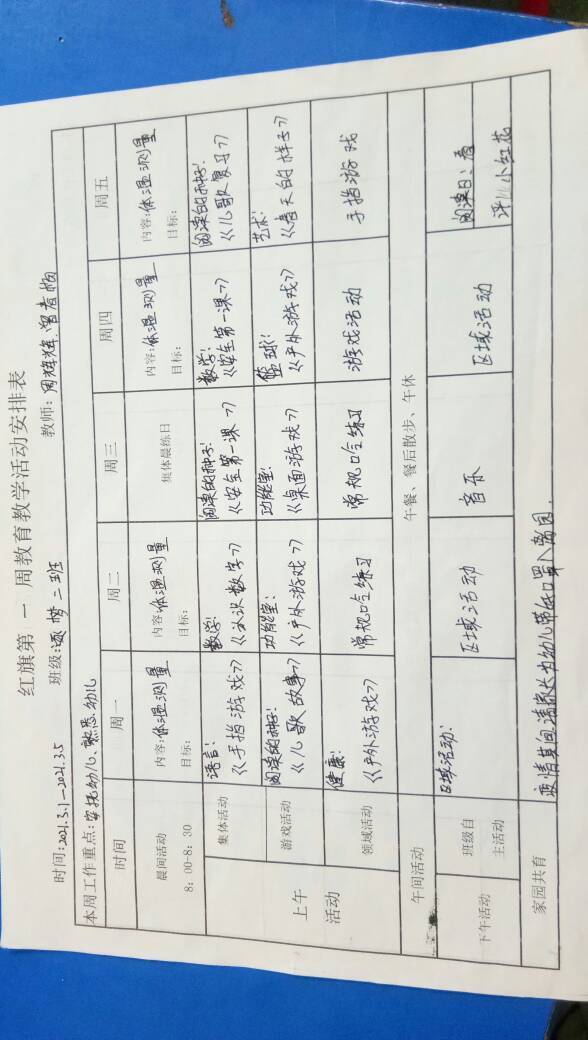 红旗第 一 周教育教学活动安排表
时间:2021.3.1—2021.3.5 班级: 二班 教师:
本周工作重点:安抚幼儿、熟悉幼儿
时间 周一 周二 周三 周四 周五
晨间活动 内容:体温测量 内容:体温测量 集体晨练日 内容:体温测量 内容:体温测量
8:00-8:30 目标: 目标: 目标: 目标:
上午活动
集体活动 语言: 数学: 阅读的种子: 数学: 阅读的种子:
《手指游戏》 《数字》 《安全第一课》 《安全第一课》 《儿歌复习》
游戏活动 阅读的种子: 功能室: 功能室: 篮球: 艺术:
《儿歌故事》 《户外游戏》 《桌面游戏》 《户外游戏》 《春天的样子》
领域活动 健康: 常规口令练习 常规口令练习 游戏活动 手指游戏
《户外游戏》
午间活动 午餐、餐后散步、午休
下午活动 班级自主活动 区域活动: 区域活动 音乐 区域活动 阅读日:看
评小红花
家园共育 疫情期间请家长为幼儿带好口罩入离园.